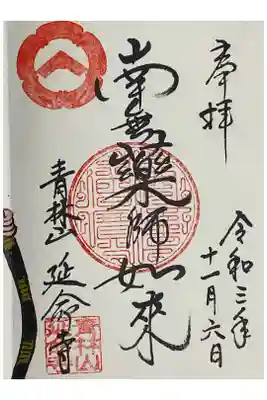 奉拝
令和三年
十一月六日
南無薬師如来
青林山
延命寺